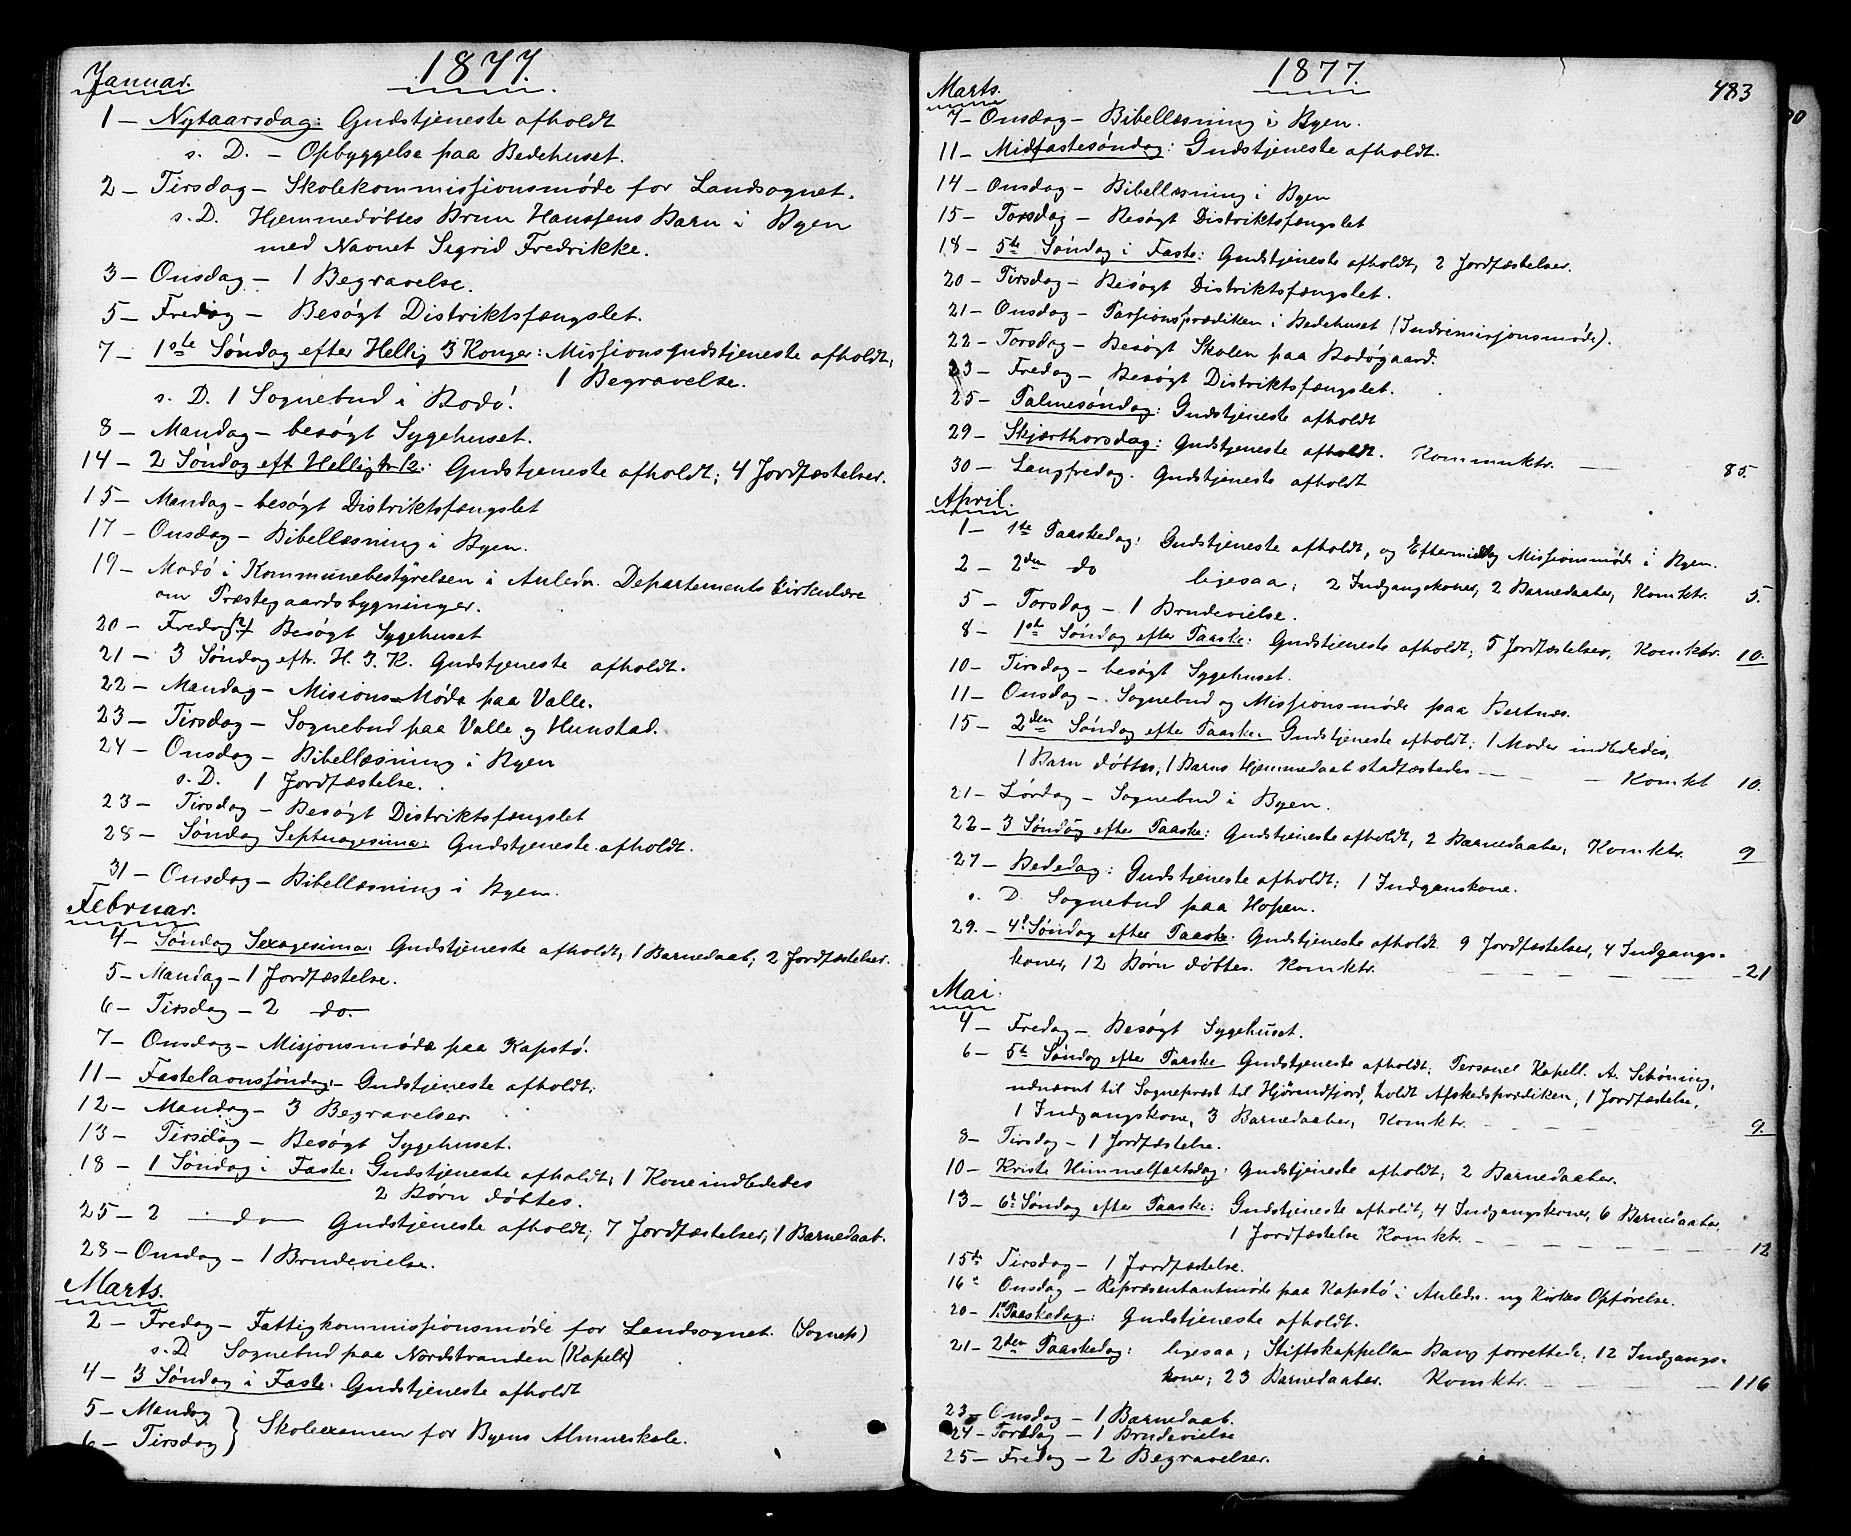 1877.
Januar.
1 – Nytaarsdag: Gudstjeneste afholdt
s. D. – Opbyggelse paa Bedehuset.
2 – Tirsdag – Skolekommissionsmøde for Landsognet.
s. D. Hjemmedøbtes Brun Hanssens Barn i Byen
med Navnet Sigrid Fredrikke.
3 – Onsdag – 1 Begravelse.
5 – Fredag – Besøgt Distriktsfængslet.
7 – 1ste Søndag efter Hellig 3 Konger: Missionsgudstjeneste afholdt,
1 Begravelse.
s. D. 1 Sognebud i Bodø.
8 – Mandag – besøgt Sygehuset.
14 – 2 Søndag eft Helligtr.k.: Gudstjeneste afholdt; 4 Jordfæstelser.
15 – Mandag – besøgt Distriktsfængslet
17 – Onsdag – Bibellæsning i Byen.
19 – Mødo i Kommunebestyrelsen i Anledn. Departements Cirkulære
om Præstegaardsbygninger.
20 – Fredag(?) Besøgt Sygehuset
21 – 3 Søndag eftr. H. 3. K. Gudstjeneste afholdt.
22 – Mandag – Misions-Møde paa Valle.
23 – Tirsdag – Sognebud paa Valle og Hunstad.
24 – Onsdag – Bibellæsning i Byen
s. D. 1 Jordfæstelse.
23 – Tirsdag – Besøgt Distriktsfængslet
28 – Søndag Septuagesima: Gudstjeneste afholdt.
31 – Onsdag – Bibellæsning i Byen.
Februar.
4 – Søndag Sexagesima: Gudstjeneste afholdt, 1 Barnedaab; 2 Jordfæstelser.
5 – Mandag – 1 Jordfæstelse.
6 – Tirsdag – 2 do.
7 – Onsdag – Misjonsmøde paa Kapstø.
11 – Fastelavnssøndag: Gudstjeneste afholdt;
12 – Mandag – 3 Begravelser
13 – Tirsdag – Besøgt Sygehuset.
18 – 1 Søndag i Faste: Gudstjeneste afholdt; 1 Kone indlededes
2 Børn døbtes.
25 – 2 do Gudstjeneste afholdt; 7 Jordfæstelser; 1 Barnedaab.
28 – Onsdag – 1 Brudevielse.
Marts.
2 – Fredag – Fattigkommissionsmøde for Landsognet. (Sognepr)
s. D Sognebud paa Nordstranden (Kapell)
4 – 3 Søndag i Faste. Gudstjeneste afholdt
5 – Mandag
6 – Tirsdag } Skoleexamen for Byens Almueskole.
1877.
483
Marts.
7 – Onsdag – Bibellæsning i Byen.
11 – Midfastesøndag: Gudstjeneste afholdt.
14 – Onsdag – Bibellæsning i Byen
15 – Torsdag – Besøgt Distriktsfængslet
18 – 5te Søndag i Faste: Gudstjeneste afholdt; 2 Jordfæstelser.
20 – Tirsdag – Besøgt Distriktsfængslet.
21 – Onsdag – Passionsprædiken i Bedehuset (Indremissjonsmøde).
22 – Torsdag – Besøgt Skolen paa Bodøgaard.
23 – Fredag – Besøgt Distriktsfængslet.
25 – Palmesøndag: Gudstjeneste afholdt
29 – Skjærthorsdag: Gudstjeneste afholdt. Kommuktr. – – 85.
30 – Langfredag. Gudstjeneste afholdt
April.
1 – 1ste Paaskedag: Gudstjeneste afholdt, og Eftermiddag Missionsmøde i Byen.
2 – 2den do ligesaa; 2 Indgangskoner, 2 Barnedaaber, Komktr. 5.
5 – Torsdag – 1 Brudevielse.
8 – 1ste Søndag efter Paaske: Gudstjeneste afholdt; 5 Jordfæstelser, Komktr. 10.
10 – Tirsdag – besøgt Sygehuset.
11 – Onsdag – Sognebud og Missionsmøde paa Bertnæs.
15 – 2den Søndag efter Paaske: Gudstjeneste afholdt; 1 Moder indlededes,
1 Barn døbtes, 1 Barns Hjemmedaab stadfæstedes – – – Komkt 10.
21 – Lørdag – Sognebud i Byen.
22 – 3 Søndag efter Paaske: Gudstjeneste afholdt, 2 Barnedaaber, Komktr. 9
27 – Bededag: Gudstjeneste afholdt; 1 Indganskone.
s. D. Sognebud paa Hopen.
29. – 4de Søndag efter Paaske. Gudstjeneste afholdt 9 Jordfæstelser, 4 Indgangs-
koner, 12 Børn døbtes. Komktr. – – – – – 21
Mai.
4 – Fredag – Besøgt Sygehuset.
6 – 5te Søndag efter Paaske Gudstjeneste afholdt; Personel Kapell. A. Schøning,
udnævnt til Sogneprest til Hjørendfjord, holdt Afskedsprædiken, 1 Jordfæstelse,
1 Indgangskone, 3 Barnedaaber, Komktr. – – – – 9.
8 – Tirsdag – 1 Jordfæstelse.
10 – Kristi Himmelfartsdag: Gudstjeneste afholdt; 2 Barnedaaber.
13 – 6te Søndag efter Paaske: Gudstjeneste afholdt, 4 Indgangskoner, 6 Barnedaaber,
1 Jordfæstelse Komktr. – – – – – 12
15de Tirsdag – 1 Jordfæstelse.
16e Onsdag – Repræsentantmøde paa Kapstø i Anledn. ny Kirkes Opførelse.
20 – 1ste Paaskedag: Gudstjeneste afholdt.
21 – 2den Paaskedag: ligesaa; Stiftskappellan Bang forrettede; 12 Indgangs-
koner; 23 Barnedaaber. Komktr. – – – 116
23 – Onsdag – 1 Barnedaab.
24 – Torsdag – 1 Brudevielse
25 – Fredag – 2 Begravelser.